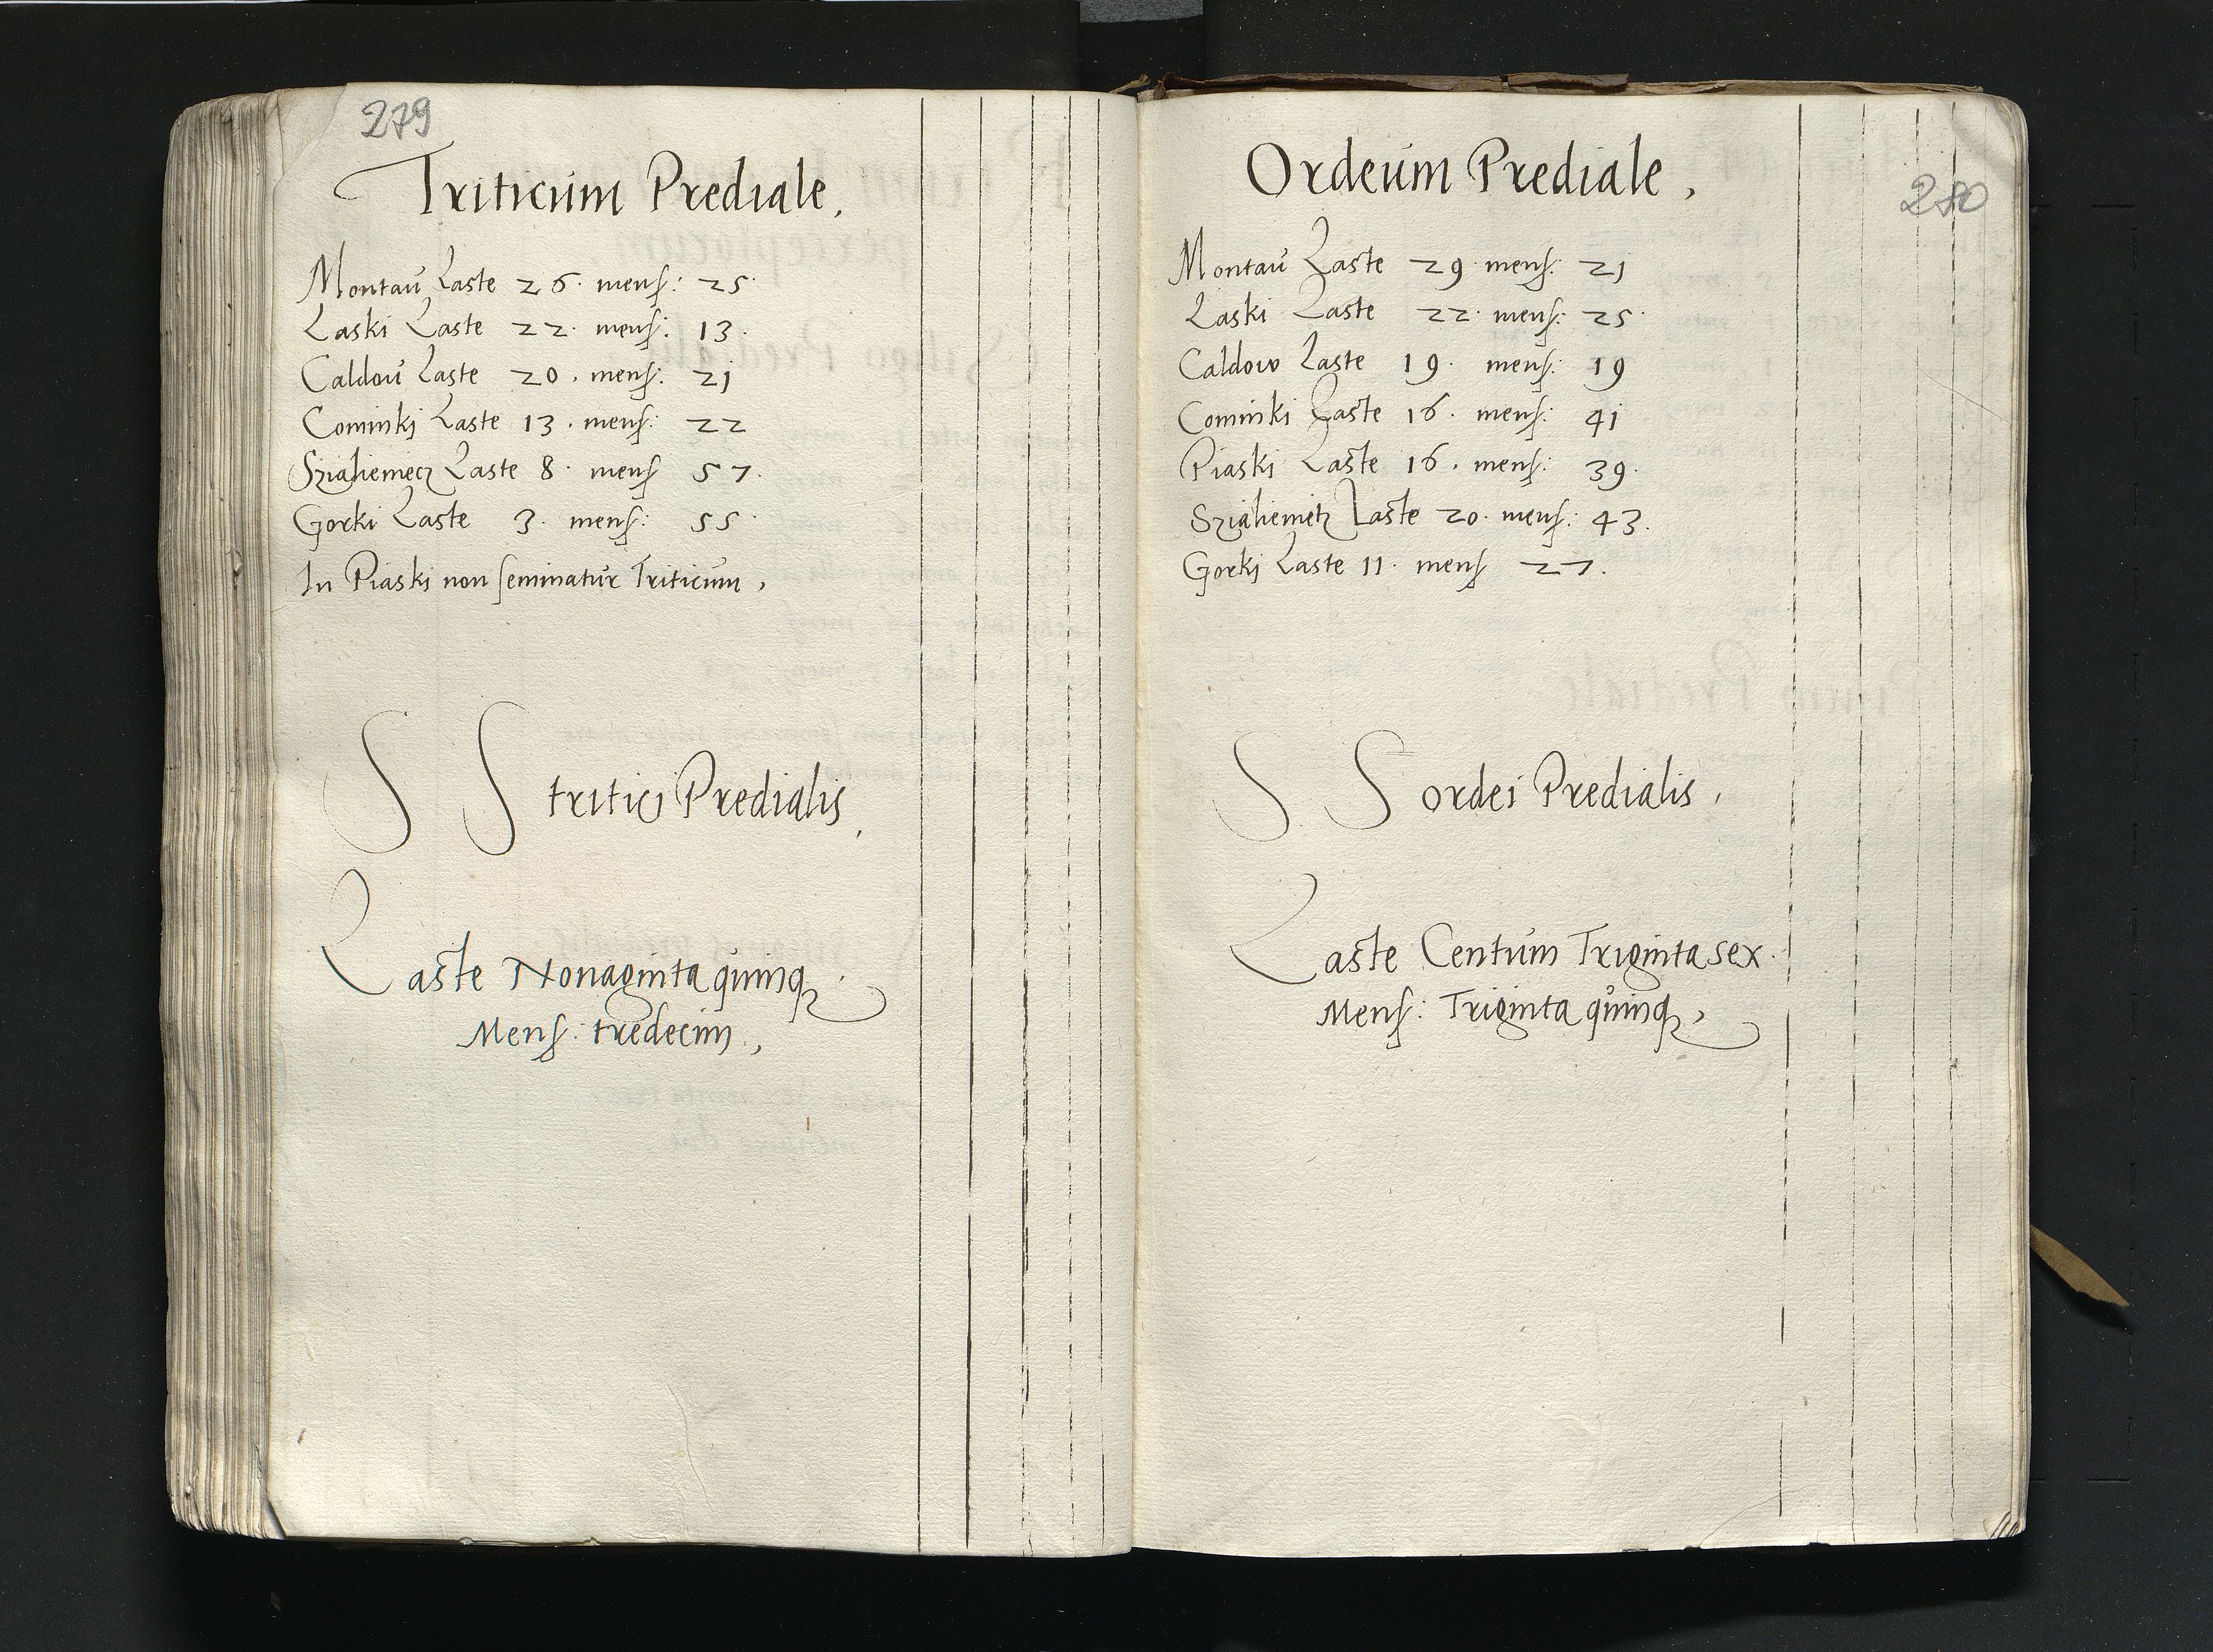 279
Triticum Prediale,
Montaŭ Laste 26. mens: 25.
Laski Laste 22. mens: 13.
Caldoŭ Laste 20. mens: 21
Cominkj Laste 13. mens: 22
Sziahemecz Laste 8. mens 57.
Gorki Laste 3. mens: 55.
In Piaski non seminatur Triticum,
S S tritici Predialis,
Laste Nonaginta quinq
Mens: tredecim,
280
Ordeum Prediale,
Montaŭ Laste 29. mens: 21
Laski Laste 22. mens: 25.
Caldow Laste 19. mens: 19
Cominki Laste 16. mens: 41
Piaski Laste 16. mens: 39.
Sziahemetz Laste 20. mens: 43.
Gorkj Laste 11. mens 27.
S S ordei Predialis,
Laste Centum Triginta sex.
Mens: Triginta quinq,